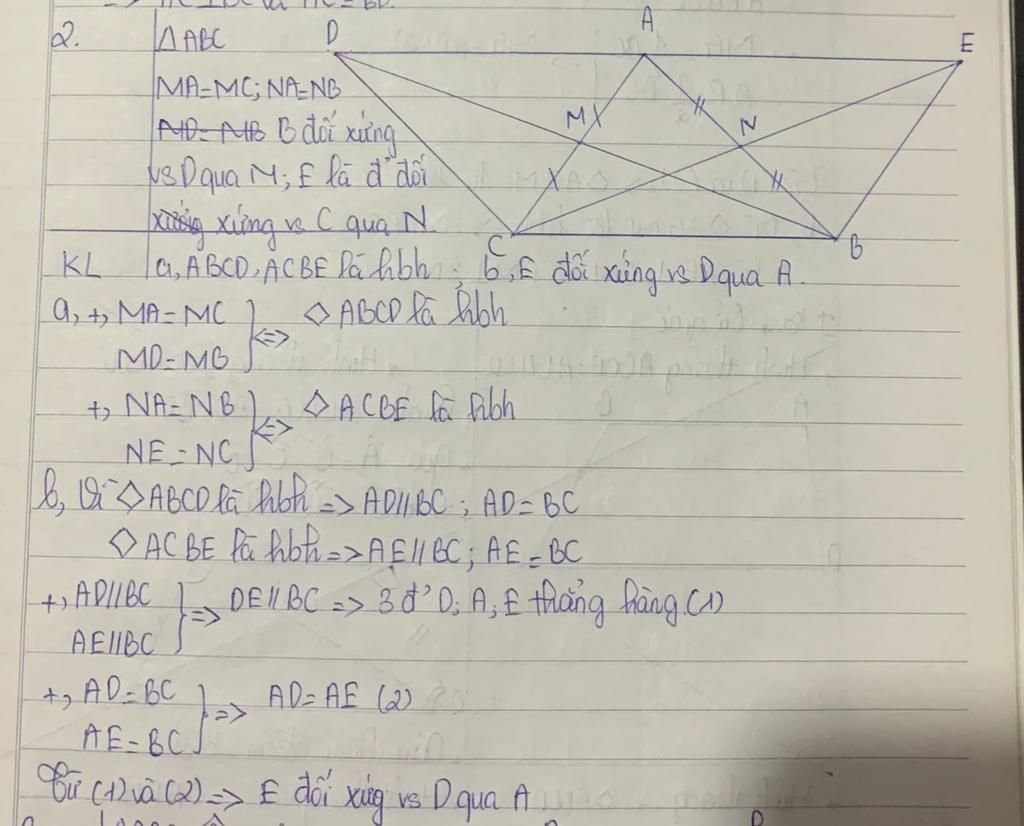 => AC ⊥ DC và AC = BD.
2. ΔABC
MA=MC; NA=NB
MD=MB B đối xứng
vs D qua M; E là đ' đối
xứng xứng vs C qua N.
D A E
M N
C B
KL a, ABCD, ACBE là hbh ; b, E đối xứng vs D qua A.
a, +, MA=MC } <=> ◇ABCD là hbh
MD=MB
+, NA=NB } <=> ◇ACBE là hbh
NE=NC
b, Vì ◇ABCD là hbh => AD//BC ; AD=BC
◇ACBE là hbh => AE//BC; AE=BC
+, AD//BC } => DE//BC => 3 đ' D; A; E thẳng hàng. (1)
AE//BC
+, AD=BC } => AD=AE (2)
AE=BC
Từ (1) và (2) => E đối xứng vs D qua A